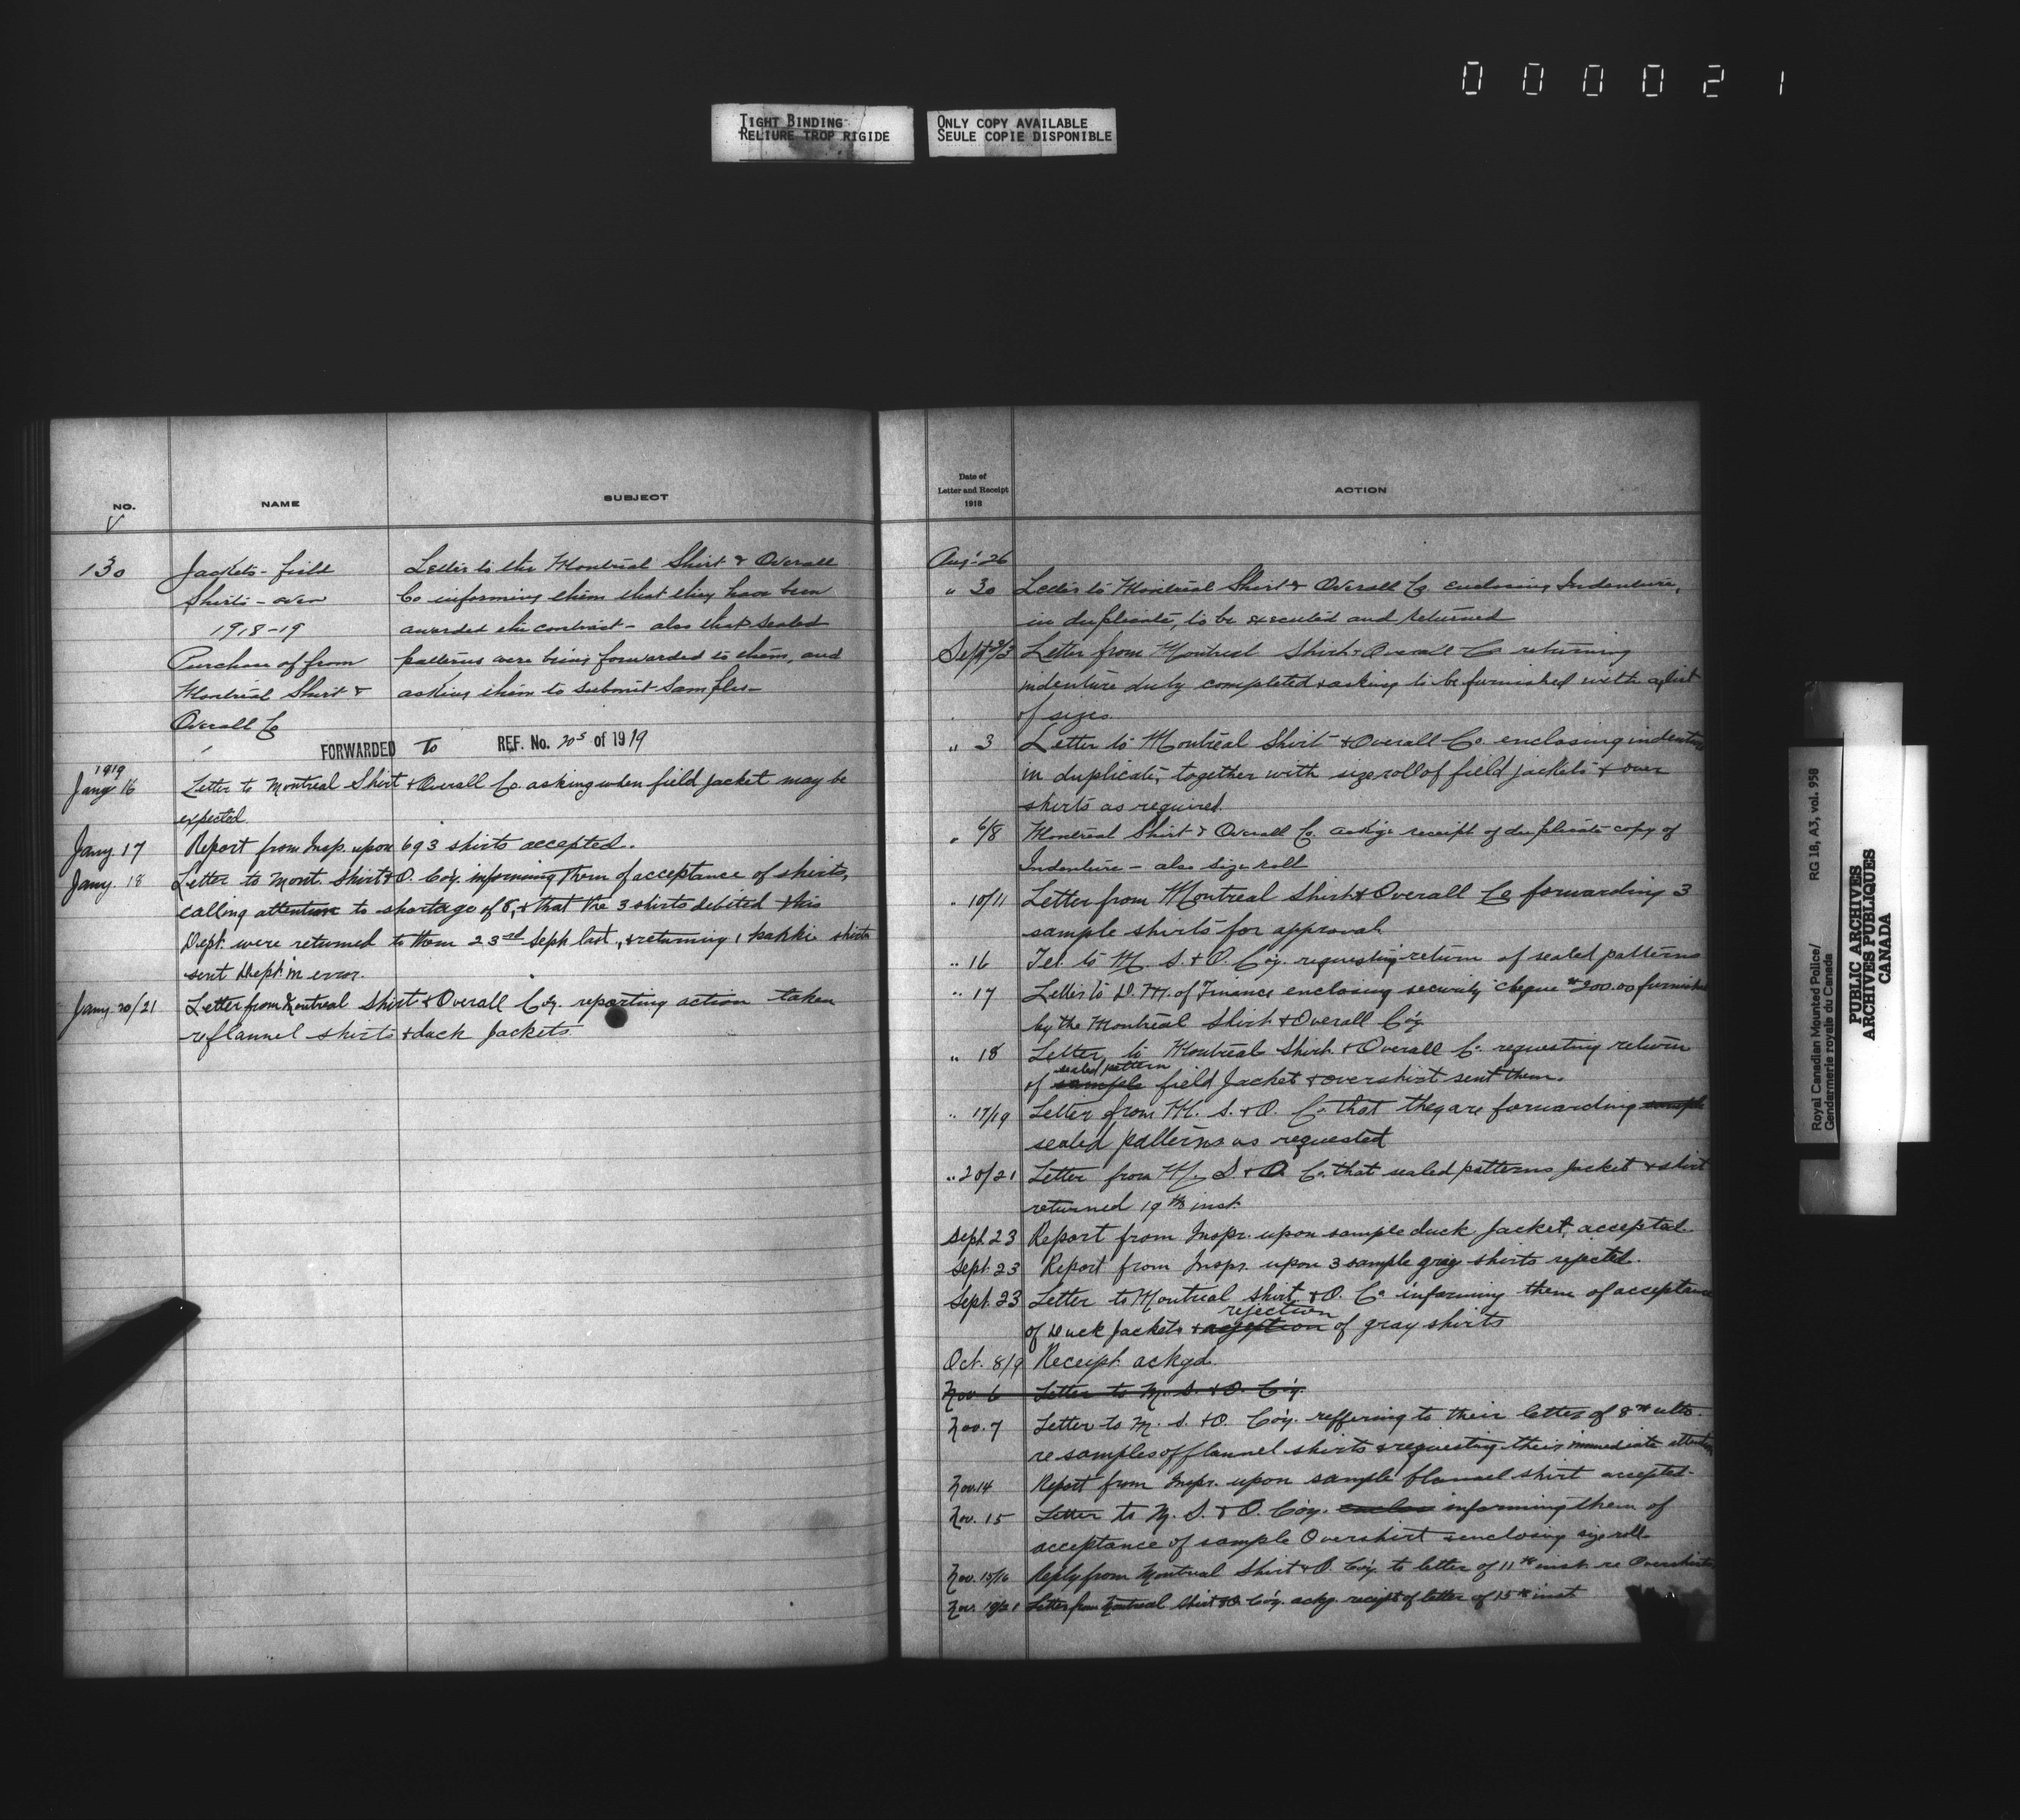 000021
TIGHT BINDING
RELIURE TROP RIGIDE
ONLY COPY AVAILABLE
SEULE COPIE DISPONIBLE
NO.
NAME
SUBJECT
V
130
Jackets - field
Shirts - over
1918-19
Purchase of from
Montreal Shirt &
Overall Co
Letter to the Montreal Shirt & Overall
Co informing them that they have been
awarded the contract - also that sealed
patterns were being forwarded to them, and
asking them to submit samples -
FORWARDED To REF. No. 205 of 1919
1919
Jany 16 Letter to Montreal Shirt & Overall Co. asking when field jacket may be
expected.
Jany. 17 Report from Insp. upon 693 shirts accepted.
Jany. 18 Letter to Mont. Shirt & O. Coy. informing them of acceptance of shirts,
calling attention to shortage of 8, & that the 3 shirts debited this
Dept. were returned to them 23rd Sept. last, & returning 1 kakki shirts
sent Dept. in error.
Jany. 20/21 Letter from Montreal Shirt & Overall Coy. reporting action taken
re flannel shirts & duck Jackets.
Date of
Letter and Receipt
1918
ACTION
Aug. 26
" 30 Letter to Montreal Shirt & Overall Co. enclosing Indenture,
in duplicate, to be executed and returned
Sept 2/3 Letter from Montreal Shirt & Overall Co returning
indenture duly completed & asking to be furnished with a list
of sizes.
" 3 Letter to Montreal Shirt & Overall Co. enclosing indenture
in duplicate, together with size roll of field jackets & over
shirts as required.
" 6/8 Montreal Shirt & Overall Co. ackg. receipt of duplicate copy of
Indenture - also size roll
" 10/11 Letter from Montreal Shirt & Overall Co forwarding 3
sample shirts for approval.
" 16 Tel. to M. S. & O. Coy. requesting return of sealed patterns
" 17 Letter to D. M. of Finance enclosing security cheque $200.00 furnished
by the Montreal Shirt & Overall Coy.
" 18 Letter to Montreal Shirt & Overall Co. requesting return
sealed pattern
of sample field Jacket & overshirt sent them.
" 17/19 Letter from M. S. & O. Co. that they are forwarding sample
sealed patterns as requested
" 20/21 Letter from M. S. & O. Co. that sealed patterns jacket & shirt
returned 19th inst.
Sept. 23 Report from Inspr. upon sample duck Jacket, accepted.
Sept. 23 Report from Inspr. upon 3 sample gray shirts rejected.
Sept. 23 Letter to Montreal Shirt & O. Co. informing them of acceptance
rejection
of Duck Jackets & of gray shirts
Oct. 8/9 Receipt ackgd.
Nov. 6 Letter to M. S. & O. Coy.
Nov. 7 Letter to M. S. & O. Coy. reffering to their letter of 8th ulto.
re samples of flannel shirts & requesting their immediate attention
Nov. 14 Report from Inspr. upon sample flannel shirt accepted.
Nov. 15 Letter to M. S. & O. Coy. enclos informing them of
acceptance of sample Overshirt & enclosing size roll.
Nov. 15/16 Reply from Montreal Shirt & O. Coy. to letter of 11th inst. re Overshirts
Nov. Letter from Montreal Shirt & O. Coy. ackg. receipt of letter of 15th inst
Royal Canadian Mounted Police/ RG 18, A3, vol. 958
Gendarmerie royale du Canada
PUBLIC ARCHIVES
ARCHIVES PUBLIQUES
CANADA